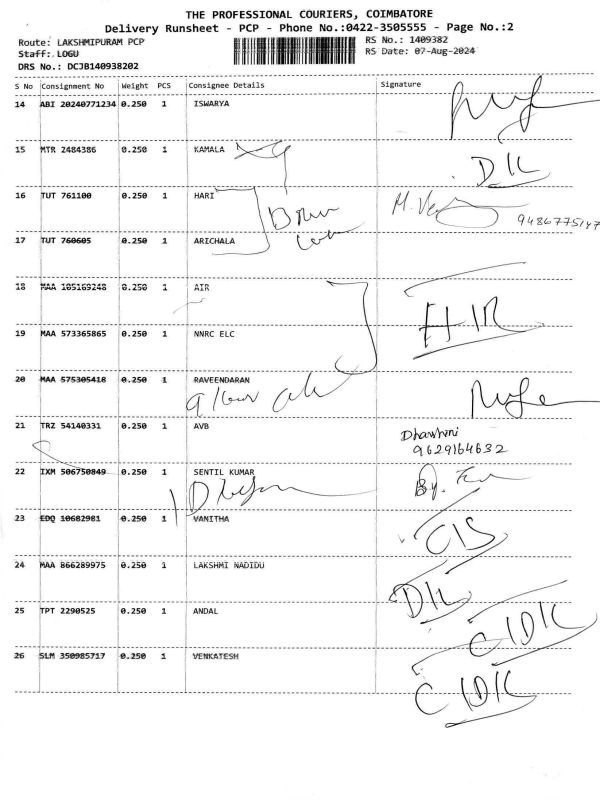 THE PROFESSIONAL COURIERS, COIMBATORE
Delivery Runsheet - PCP - Phone No.:0422-3505555 - Page No.:2
Route: LAKSHMIPURAM PCP
RS No.: 1409382
Staff: LOGU
RS Date: 07-Aug-2024
DRS No.: DCJB140938202
S No Consignment No Weight PCS Consignee Details Signature
14 ABI 20240771234 0.250 1 ISWARYA
15 MTR 2484386 0.250 1 KAMALA
D/L
16 TUT 761100 0.250 1 HARI
9486775147
17 TUT 760605 0.250 1 ARICHALA
18 MAA 105169248 0.250 1 AIR
19 MAA 573365865 0.250 1 NNRC ELC
20 MAA 575305418 0.250 1 RAVEENDARAN
21 TRZ 54140331 0.250 1 AVB
9629164632
22 IXM 506750849 0.250 1 SENTIL KUMAR
23 EDQ 10682981 0.250 1 VANITHA
24 MAA 866289975 0.250 1 LAKSHMI NADIDU
25 TPT 2290525 0.250 1 ANDAL
26 SLM 350985717 0.250 1 VENKATESH